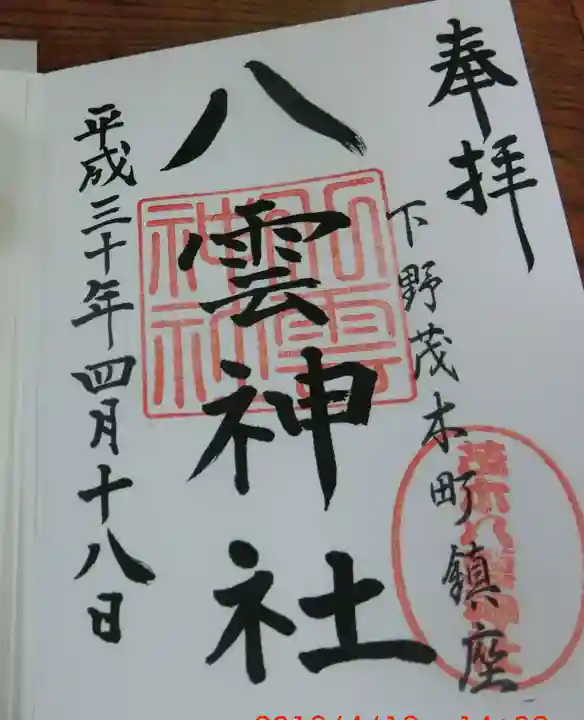 奉拝
下野茂木町鎮座
八雲神社
平成三十年四月十八日
八雲神社